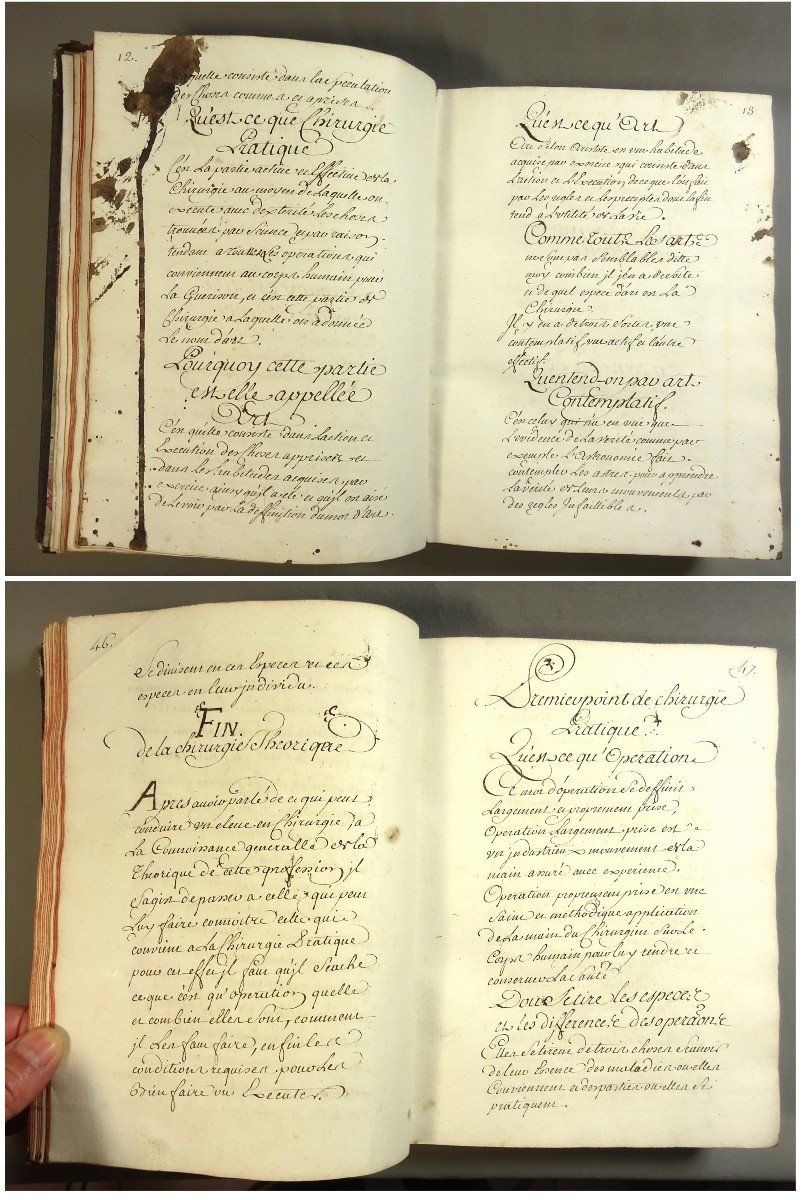 12.
laquelle consiste dans la speculation
des choses comme
Qu'est ce que Chirurgie
Pratique
C'en la partie active et effective de la
Chirurgie au moyen de laquelle on
execute avec dexterité les choses
trouvées par science et par raison
tendam a toutes les operations qui
conviennent au corps humain pour
La Guerison, et c'en cette partie de
Chirurgie a laquelle on a donnée
Le nom d'art.
Pourquoy cette partie
est elle appellée
Art
C'en qu'elle consiste dans l'action et
Execution des choses apprises et
dans les habitudes acquises par
exercice ainsy qu'il a eté et qu'il en aise
de le voir par la deffinition du mot d'art.
13
Qu'est ce qu'Art
Art selon Aristote en une habitude
acquise par exercice qui consiste dans
L'action et L'Execution de ce que l'on fait
par les regles et les preceptes dont la fin
tend à l'utilité de la vie.
Comme toute les arts
ne sont pas semblables ditte
moy combien jl y en a de sorte
et de quel espece d'art en La
Chirurgie.
Jl y en a de trois sortes, une
contemplatif, une actif et l'autre
effectif.
Qu'entend-on par art
Contemplatif.
C'en celuy qui n'a en vue que
L'evidence de la verité comme par
exemple L'Astronomie fait
contempler les astres pour apprendre
la verité de leurs mouvements, par
des regles Jnfaillibles.
46.
Se divisent en ces Especes et ces
especes en leur jndividu.
FIN.
de la chirurgie Theorique
Apres avoir parlé de ce qui peut
conduire un eleve en Chirurgie, a
La Connoissance generalle de la
Theorique de cette profession, jl
s'agit de passer a celle qui peut
Luy faire connoitre celle qui
convient a La Chirurgie Pratique
pour cet effet jl faut qu'jl Scache
ce que c'en qu'operation, quelle
et combien elles sont, comment
jl les faut faire, enfin les
conditions requises pour les
Bien faire ou Executer.
47.
Premier point de chirurgie
Pratique
Qu'est ce qu'Operation
Ce mot d'operation se deffinit
Largement et proprement prise,
Operation Largement prise est
un industrieux mouvement de la
main assuré avec experience.
Operation proprement prise en une
Saine et methodique application
de La main du Chirurgien Sur Le
Corps humain pour luy rendre et
conserver la Santé
D'ou se tire les especes
et les differences des operaõns
Elles se tirent de trois choses scavoir
de leur Essence des maladies ou elles
Conviennent et des parties ou elles se
pratiquent.